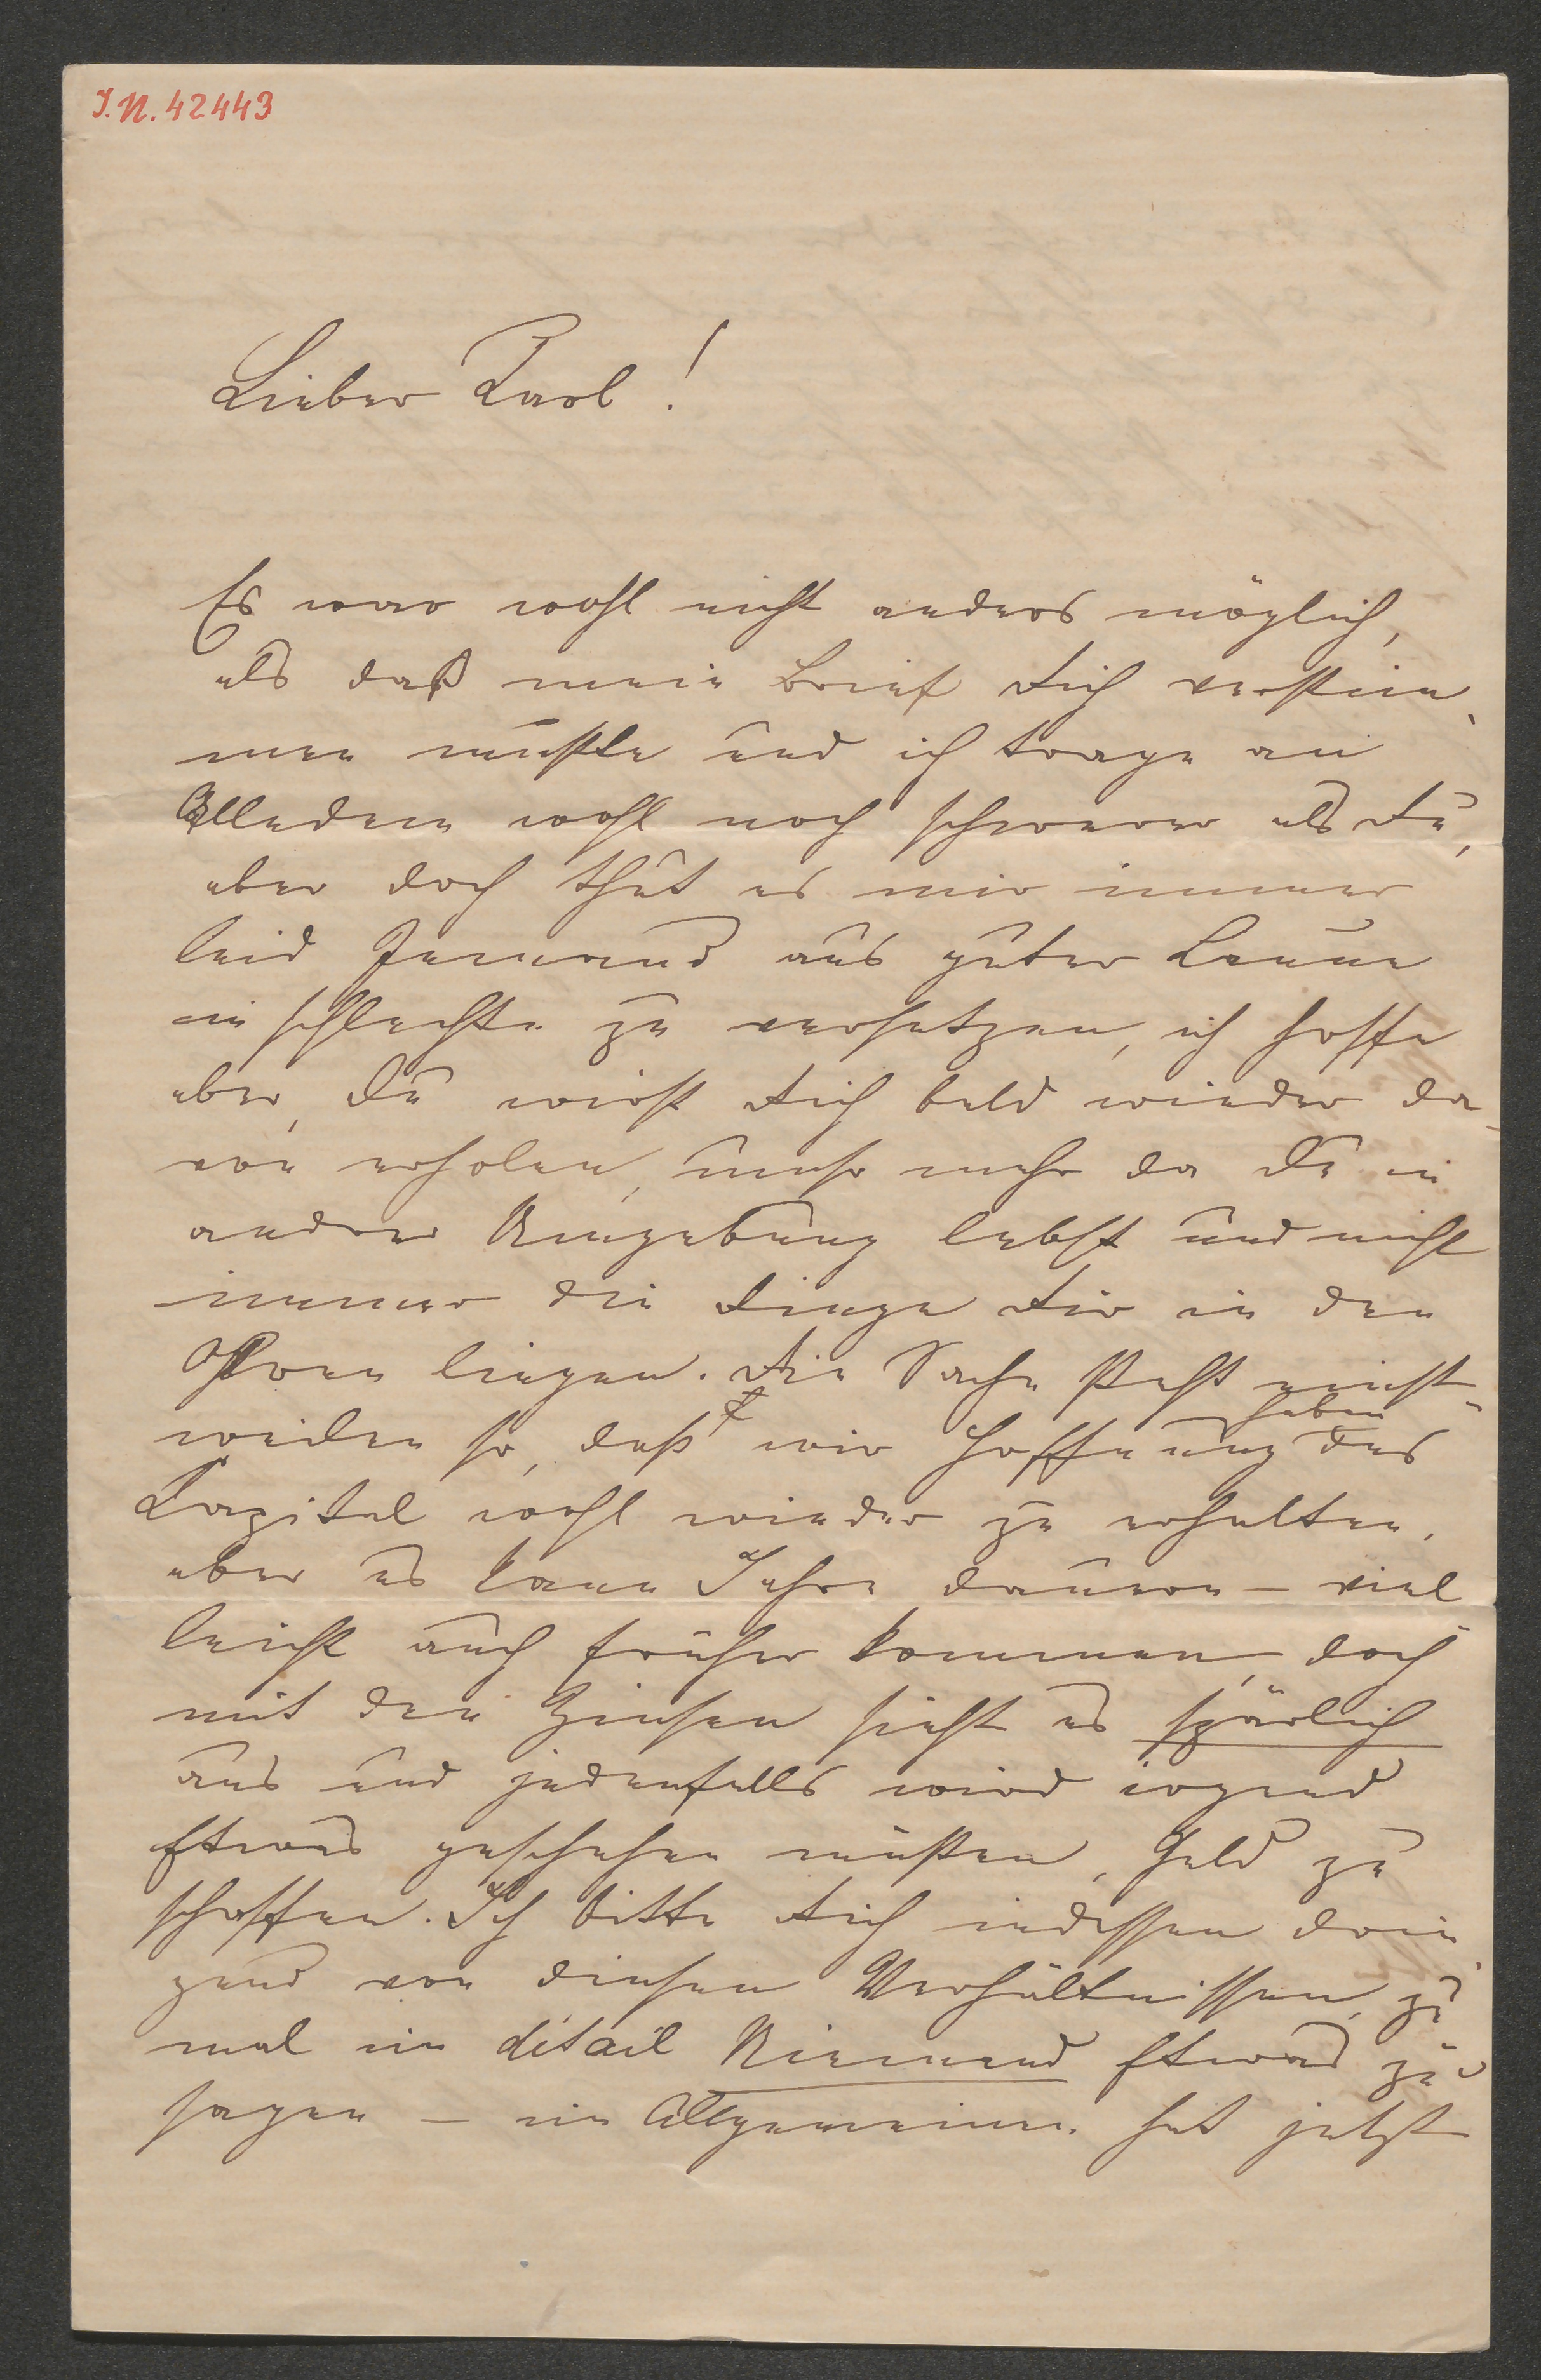 I.N. 42443
Lieber Karl!
Es war wohl nicht anders möglich,
als daß mein Brief Dich verstim
men mußte und ich trage an
Alledem wohl noch schwerer als Du,
aber doch thut es mir immer
leid Jemand aus guter Laune
in schlechte zu versetzen, ich hoffe
aber, Du wirst Dich bald wieder da-
von erholen, umso mehr da Du in
andrer Umgebung lebst und nicht
immer die Dinge Dir in den
Ohren liegen. Die Sache steht einst-
weilen so, daß wir Hoffnung haben das
Kapital wohl wieder zu erhalten,
aber es kann Jahre dauern – viel
leicht auch früher kommen, doch
mit den Zinsen sieht es spärlich
aus und jedenfalls wird irgend
Etwas geschehen müßen, Geld zu
schaffen. Ich bitte Dich indessen drin
gend von diesen Verhältnissen, zu
mal im détail Niemand Etwas zu
sagen – im Allgemeinen hat jetzt